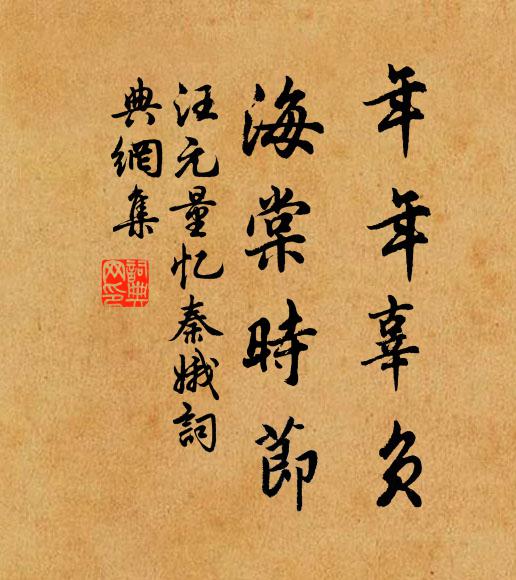 年年辜负
海棠時節
汪元量忆秦娥詞
典網集
詞典
网印